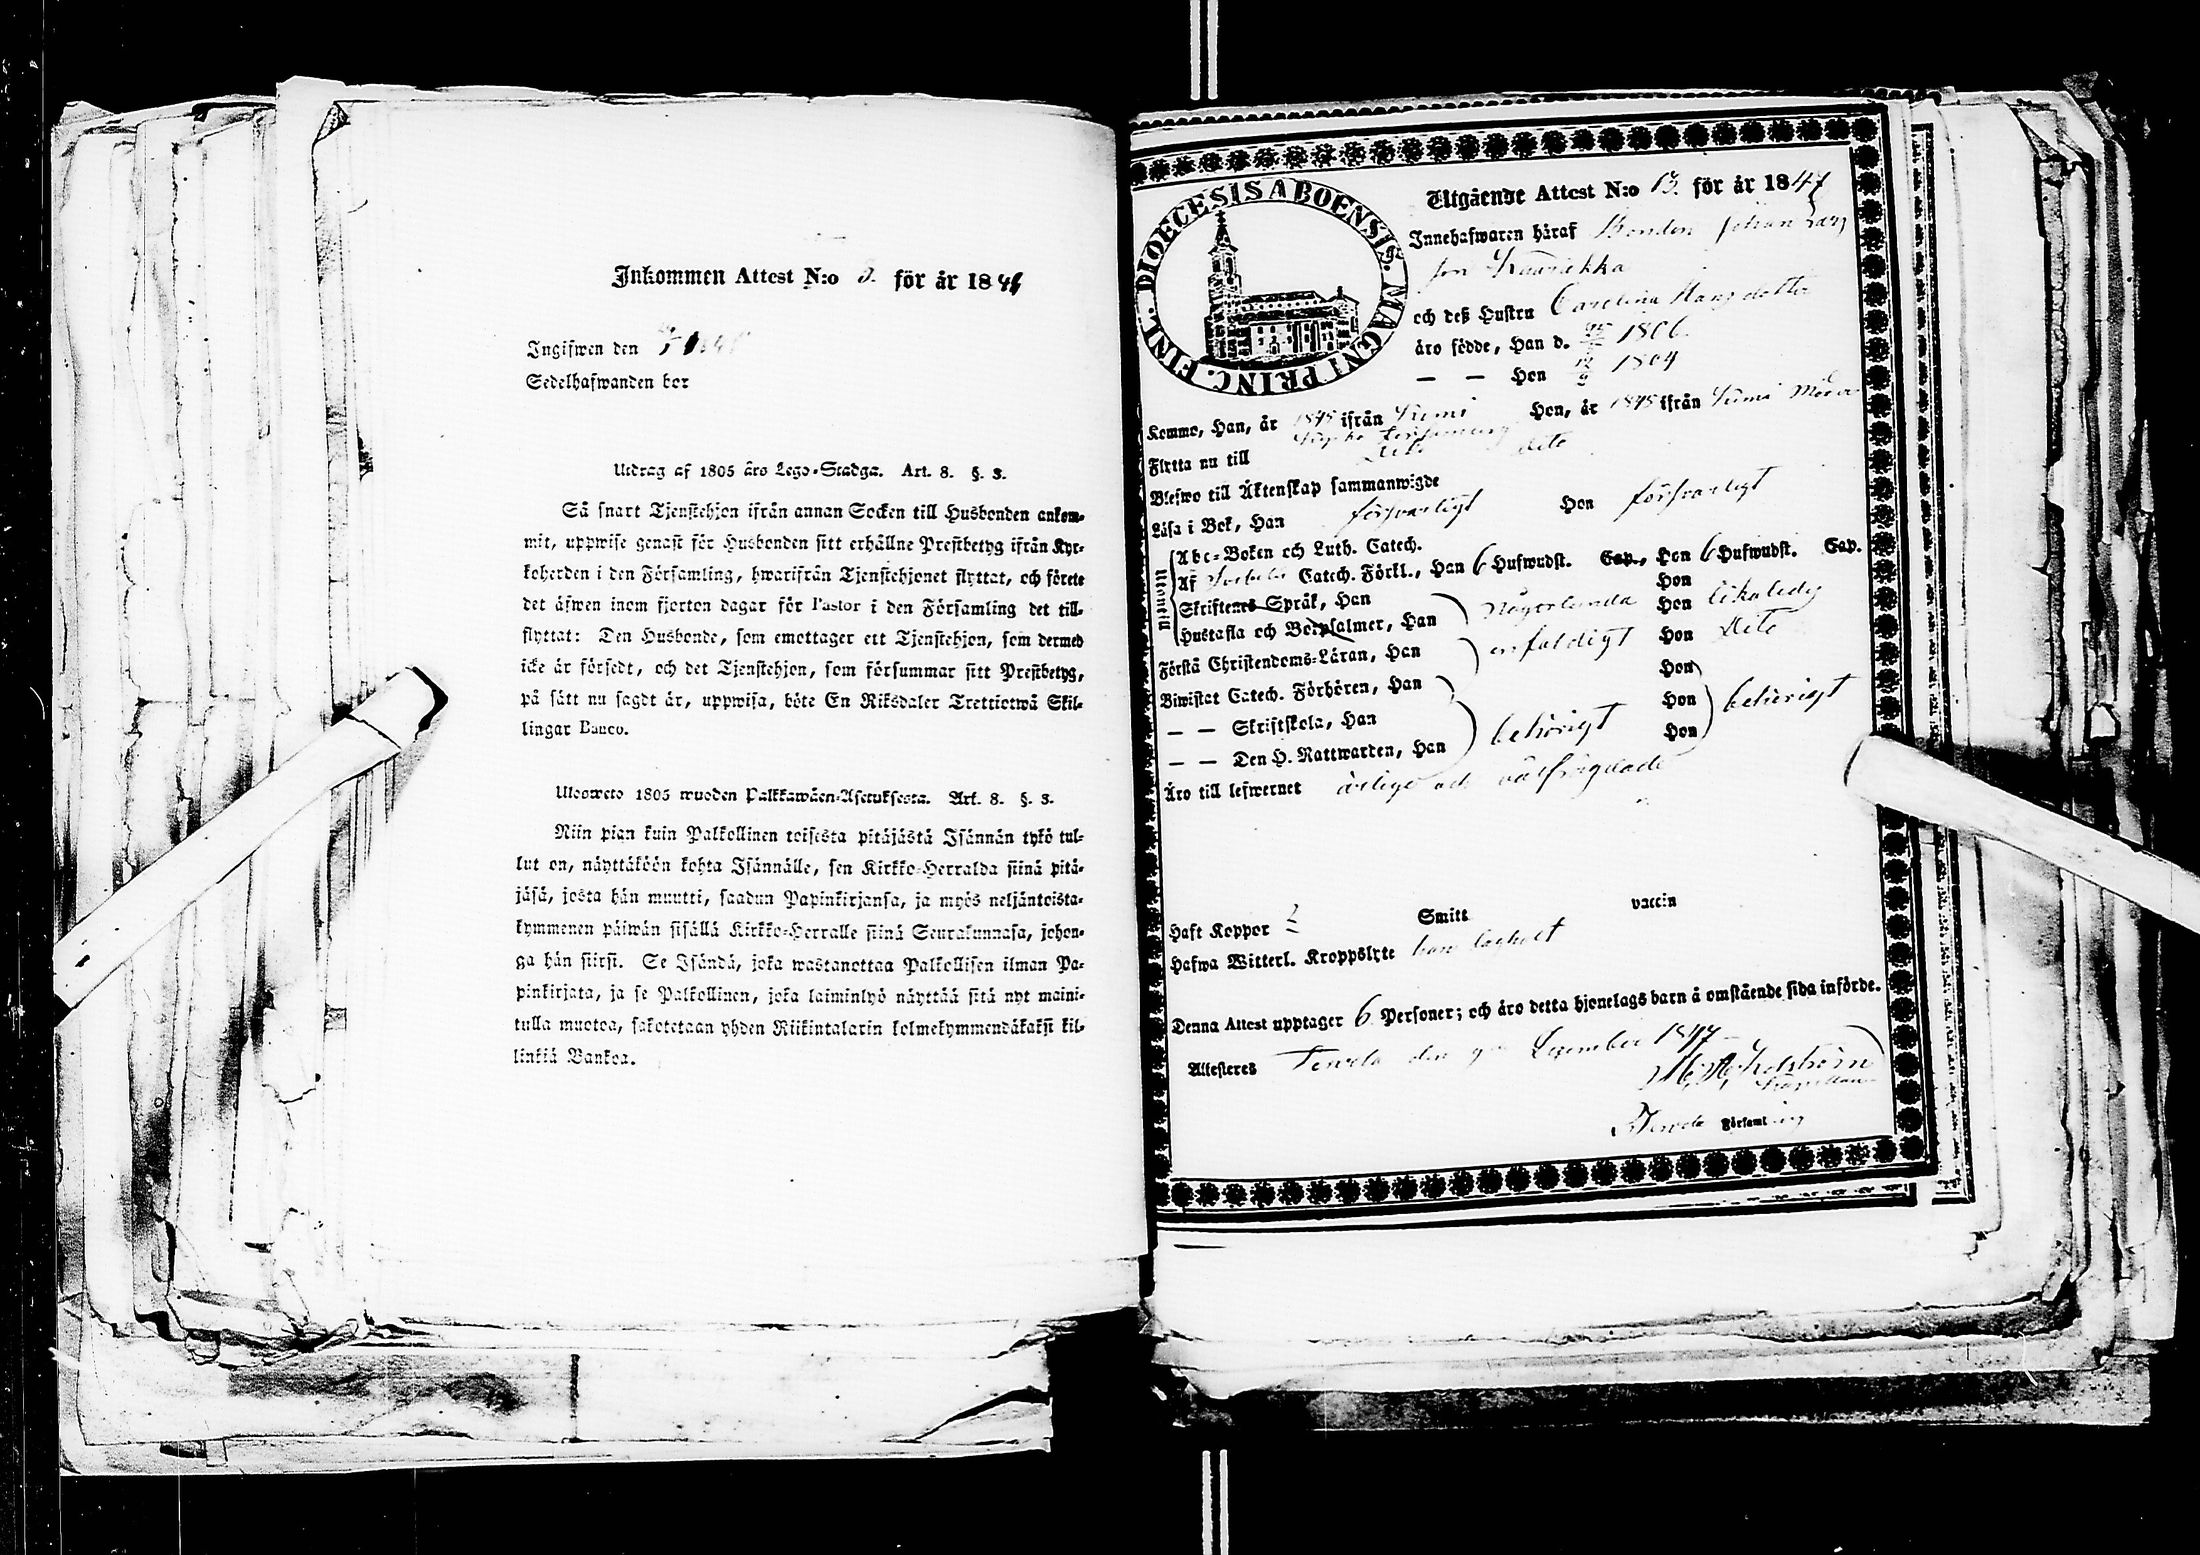 Inkommen Attest N:o 3. för år 18
Ingifwen den
Sedelhafwanden bor
Utdrag af 1805 års Lego-Stadga. Art. 8. §. 3.
Så snart Tjenstehjon ifrån annan Socken till Husbonden ankom-
mit, uppwise genast för Husbonden sitt erhållne Prestbetyg ifrån Kyr-
koherden i den Församling, hwarifrån Tjenstehjonet flyttat, och förete
det äfwen inom fjorton dagar för Pastor i den Församling det till-
flyttat: Den Husbonde, som emottager ett Tjenstehjon, som dermed
icke är försedt, och det Tjenstehjon, som försummar sitt Prestbetyg,
på sätt nu sagdt är, uppwisa, böte En Riksdaler Trettiotwå Skil-
lingar Banco.
Ulosweto 1805 wuoden Palkkawäen-Asetuksesta. Art. 8. §. 3.
Niin pian kuin Palkollinen toisesta pitäjästä Isännän tykö tul-
lut on, näyttäköön kohta Isännälle, sen Kirkko-Herralda siinä pitä-
jäsä, josta hän muutti, saadun Papinkirjansa, ja myös neljäntoista-
kymmenen päiwän sisällä Kirkko-Herralle siinä Seurakunnasa, johon-
ga hän siirsi. Se Isändä, joka wastanottaa Palkollisen ilman Pa-
pinkirjata, ja se Palkollinen, joka laiminlyö näyttää sitä nyt maini-
tulla muotoa, sakotetaan yhden Riikintalarin kolmekymmendäkaksi kil-
linkiä Bankoa.
DIOECESIS ABOENSIS. MAGNI PRINC. FINL.
Utgående Attest N:o 13. för år 1847
Innehafwaren häraf Bonden Johan Lars
son
och deß Hustru Carolina Hansdotter
äro födde, Han d. 1806
— — Hon 12/9 1804
Kommo, Han, år 1845 ifrån Kumi Hon, år 1845 ifrån Kumi
Flytta nu till
Blefwo till Äktenskap sammanwigde
Läsa i Bok, Han försvarligt Hon försvarligt
Utantill
Abc-Boken och Luth. Catech.
Af Catech. Förkl., Han 6 Hufwudst. Cap., Hon 6 Hufwudst. Cap.
Skriftenes Språk, Han Hon
Hustafla och Botpsalmer, Han någorlunda Hon likaledes
Förstå Christendoms-Läran, Han enfaldigt Hon dito
Biwistat Catech. Förhören, Han Hon
— — Skriftskola, Han behörigt Hon behörigt
— — Den H. Nattwarden, Han Hon
Äro till lefwernet ärlige och välfrägdade
Haft Koppor Smitt vaccin
Hafwa Witterl. Kroppslyte
Denna Attest upptager 6 Personer; och äro detta hjonelags barn å omstående sida införde.
Attesteres Terwola den December 1847
Terwola Församling